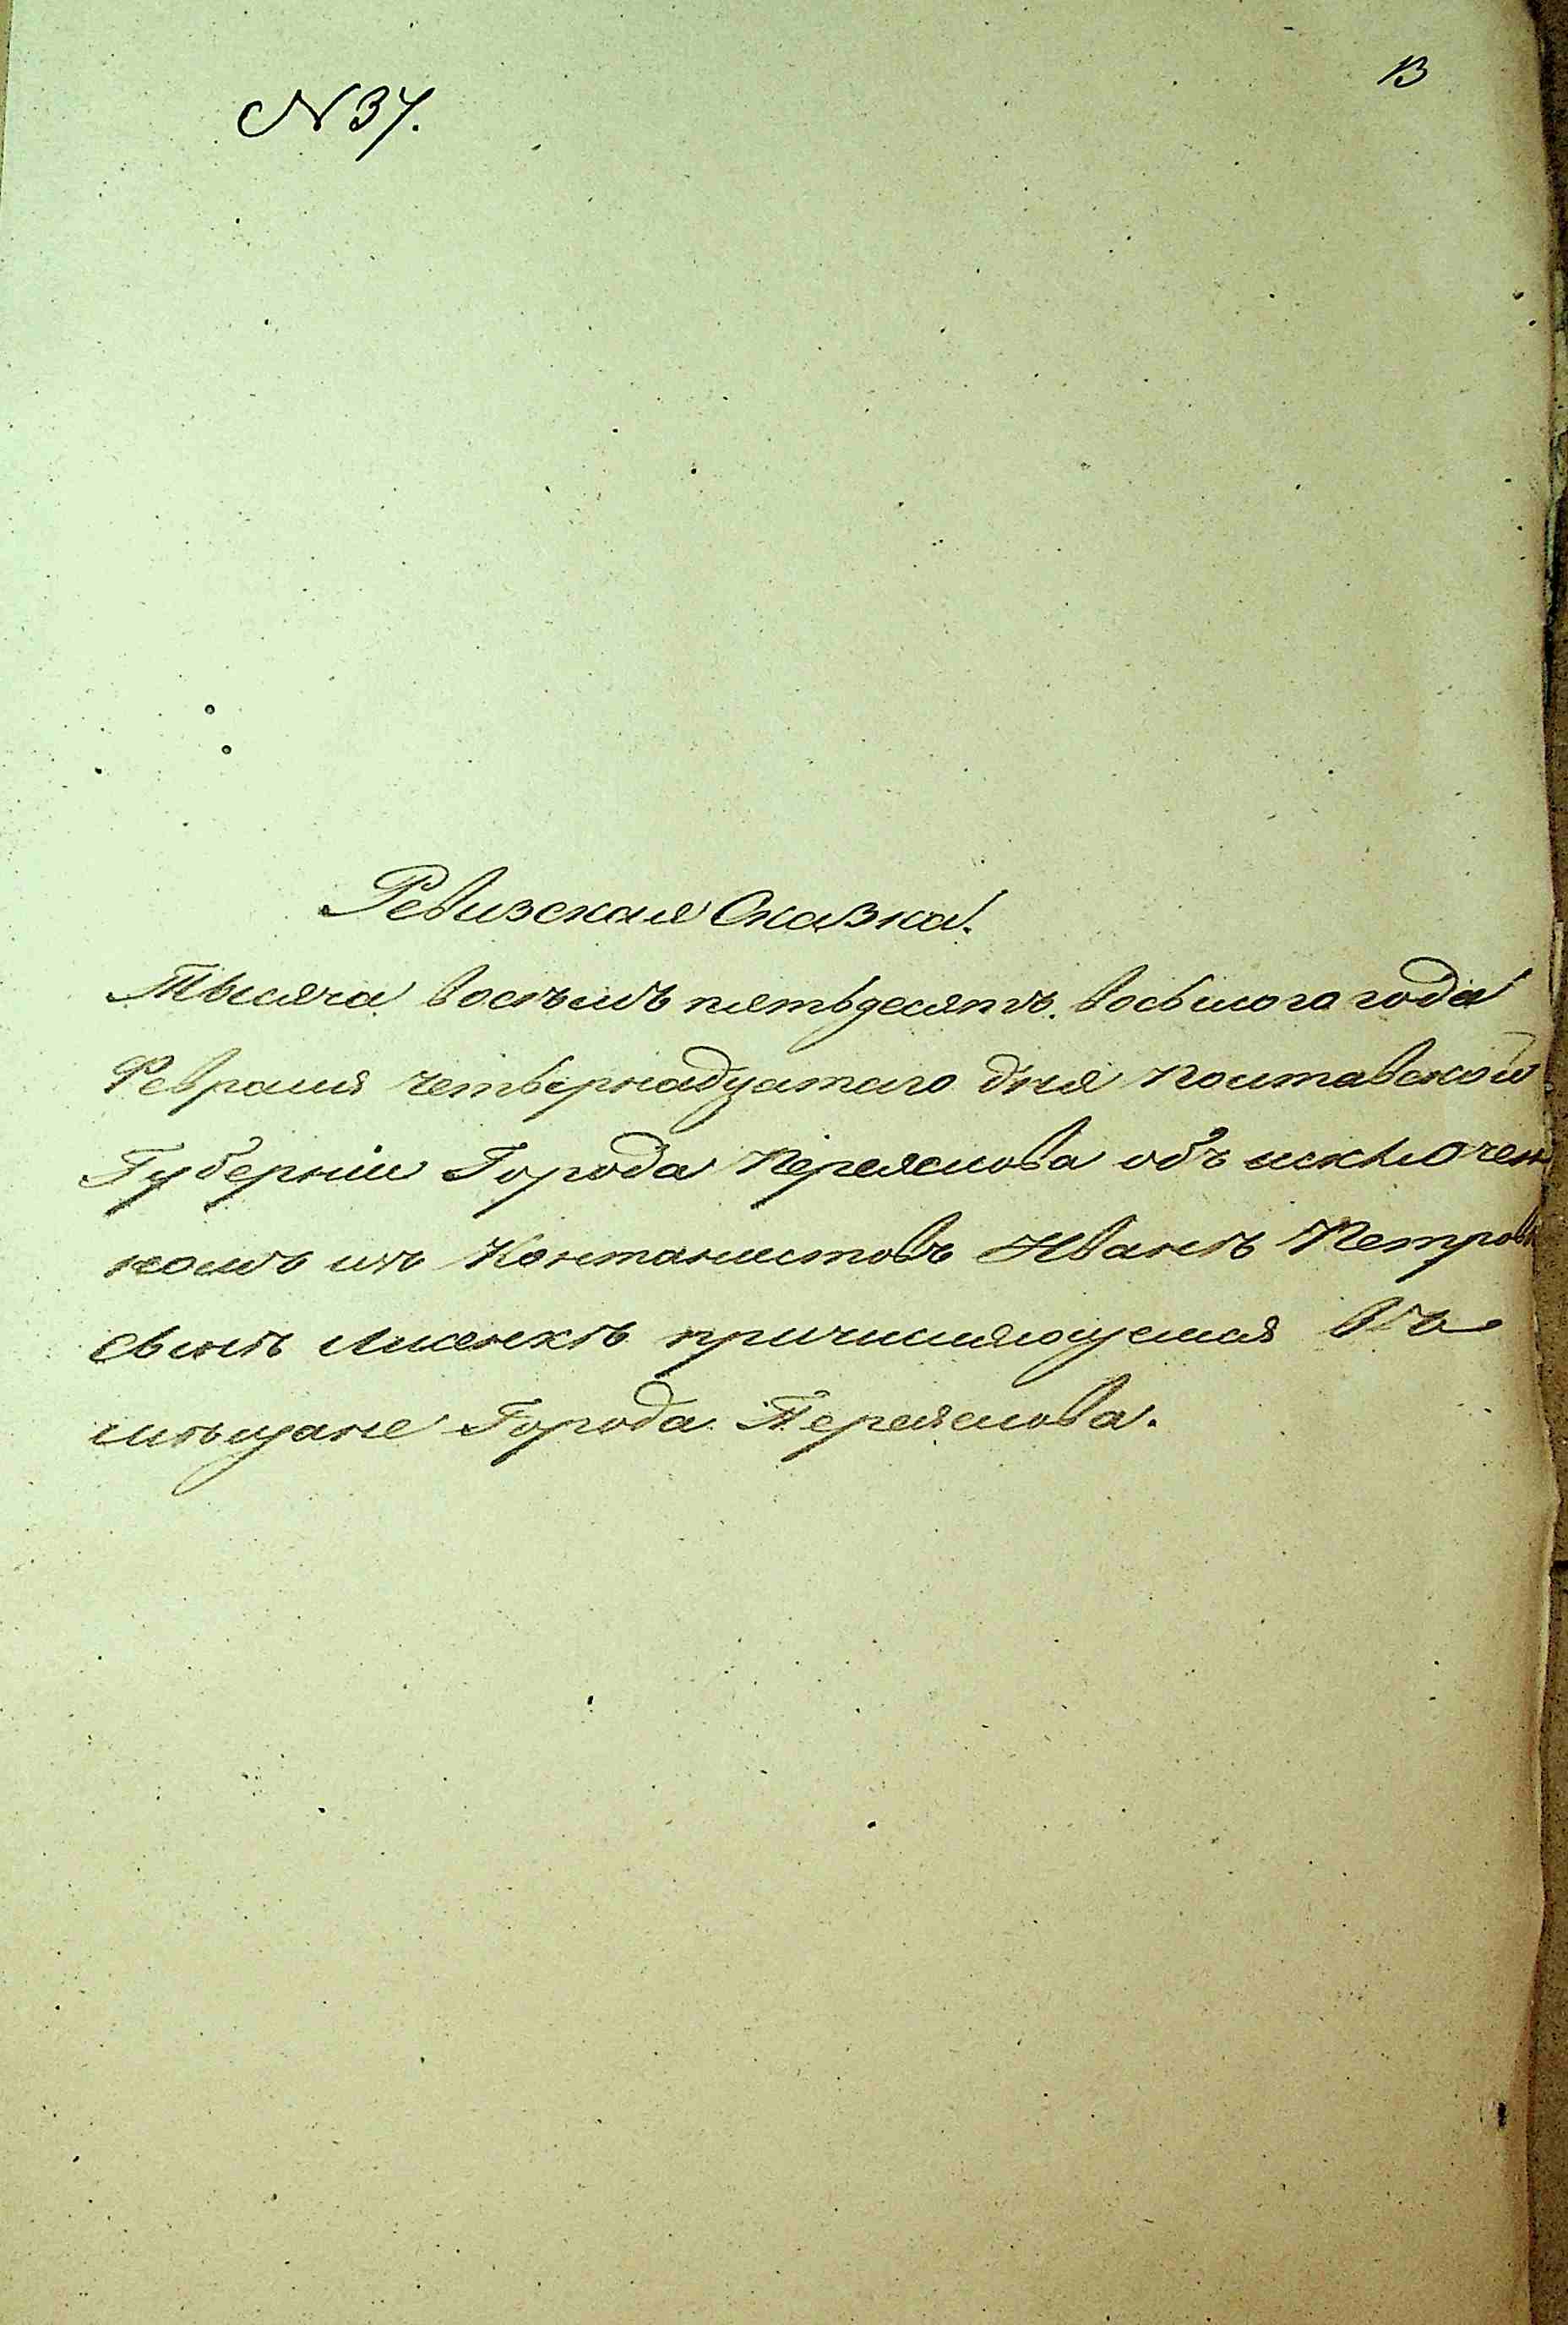 13
N 37.
Ревизская Сказка.
Тысяча восемь пятьдесятъ восьмого года
Февраля четвернадцатаго дня Полтавской
Губерніи Города Переяслова объ исключен
номъ изъ Контонистовъ Иванѣ Петровѣ
сынѣ Лисенкѣ причисляющемся въ
мѣщане Города Переяслова.